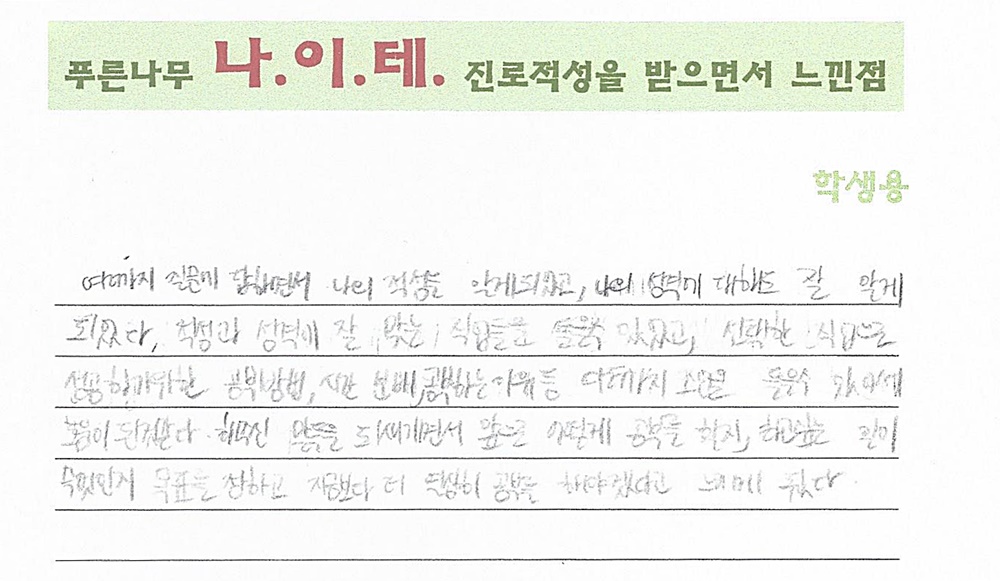 푸른나무 나.이.테. 진로적성을 받으면서 느낀점
학생용
여러가지 질문에 답하면서 나의 적성을 알게되었고, 나의 성격에 대해도 잘 알게
되었다. 적성과 성격에 잘 맞는 직업들을 들을수 있었고, 선택한 직업으로
성공하기위한 공부방법, 시간 분배, 공부하는 이유 등 여러가지 조언을 들을수 있어서
도움이 된것같다. 해주신 말들을 되새기면서 앞으로 어떻게 공부를 할지, 하고싶은 것이
무엇인지 목표를 정하고 지금보다 더 열심히 공부를 해야겠다고 느끼게 됬다.